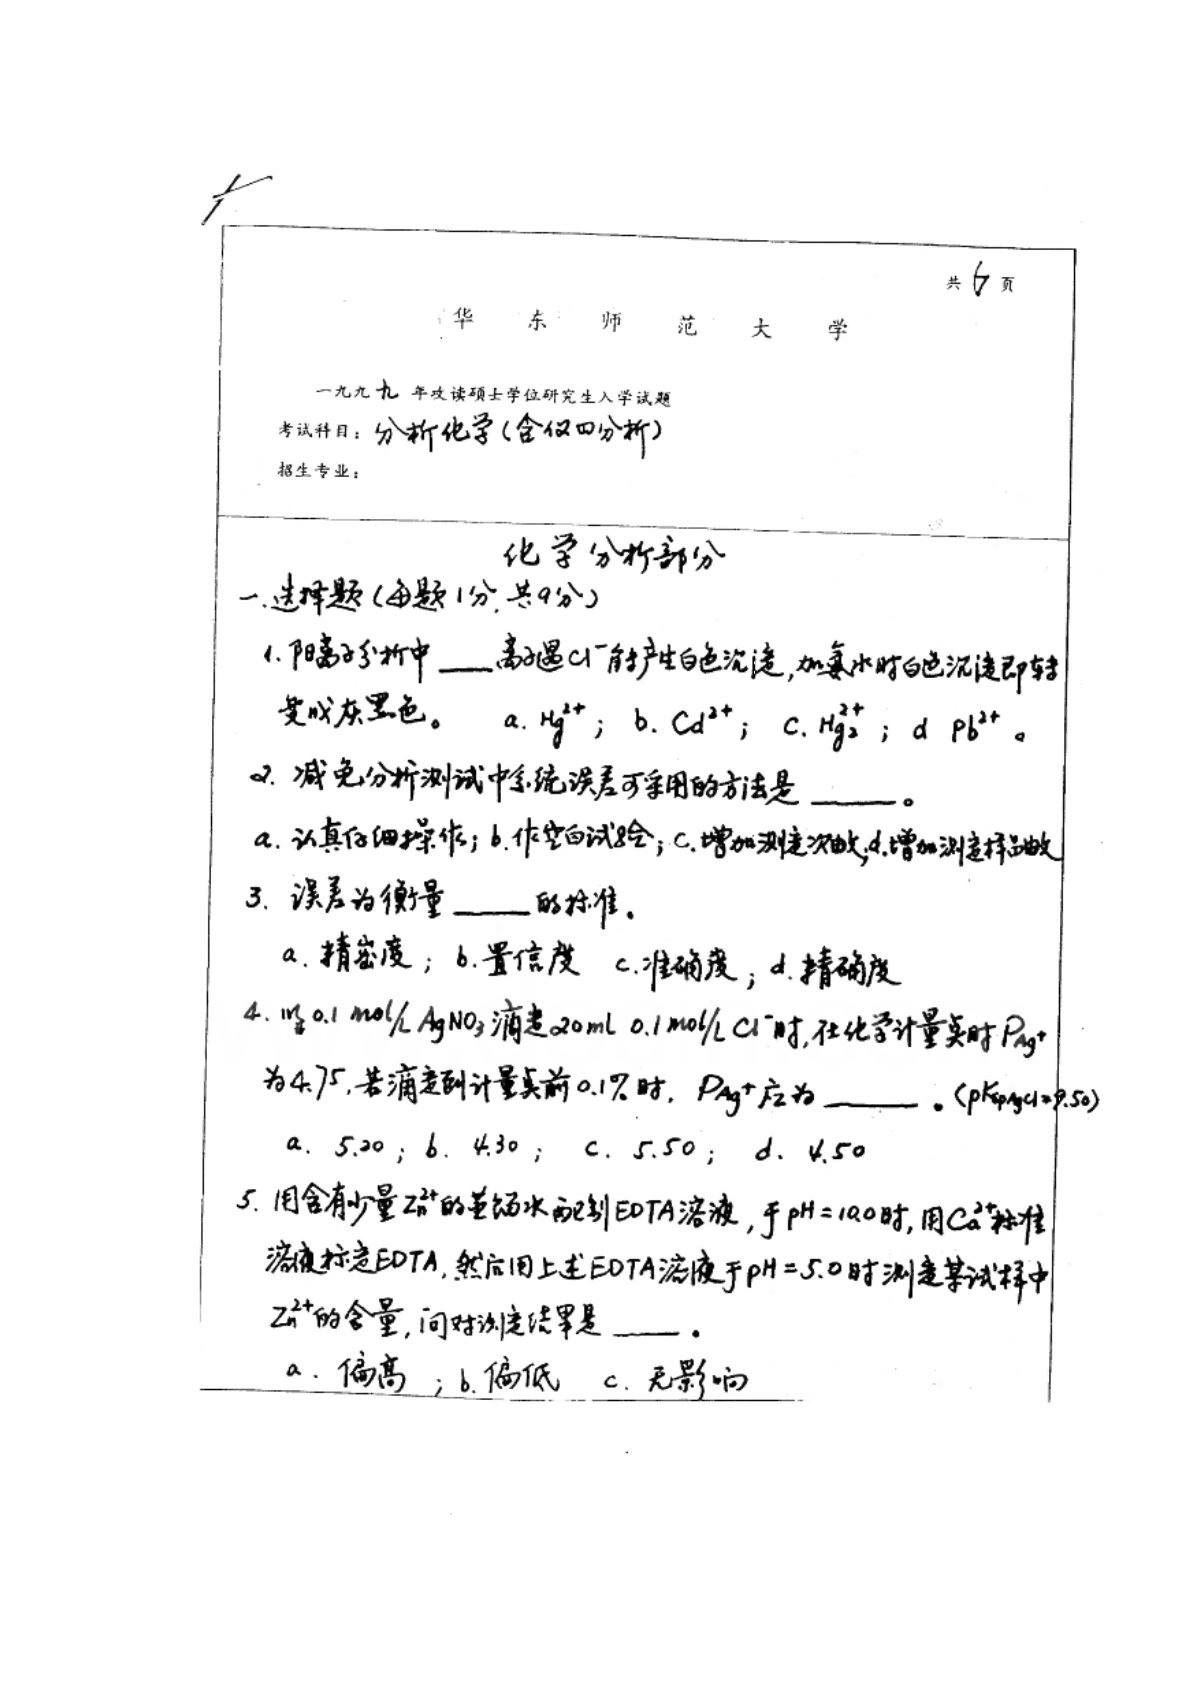 共6页
华东师范大学
一九九九年攻读硕士学位研究生入学试题
考试科目：分析化学(含仪四分析)
招生专业：
化学分析部分
一.选择题(每题1分,共9分)
1.阳离子分析中____离子遇Cl⁻能产生白色沉淀,加氨水时白色沉淀即转
变成灰黑色。 a. Hg²⁺; b. Cd²⁺; c. Hg₂²⁺; d Pb²⁺。
2. 减免分析测试中系统误差可采用的方法是____。
a. 认真仔细操作; b.作空白试验; c.增加测定次数;d.增加测定样品数
3. 误差为衡量____的标准.
a. 精密度; b.置信度 c.准确度; d.精确度
4. 以0.1 mol/L AgNO₃滴定20mL 0.1mol/L Cl⁻时,在化学计量点时PAg⁺
为4.75,若滴定到计量点前0.1%时, PAg⁺应为____。(pKspAgCl=9.50)
a. 5.20; b. 4.30; c. 5.50; d. 4.50
5. 用含有少量Zn²⁺的蒸馏水配制EDTA溶液,于pH=10.0时,用Ca²⁺标准
溶液标定EDTA,然后用上述EDTA溶液于pH=5.0时测定某试样中
Zn²⁺的含量,问对测定结果是____.
a. 偏高; b.偏低 c. 无影响